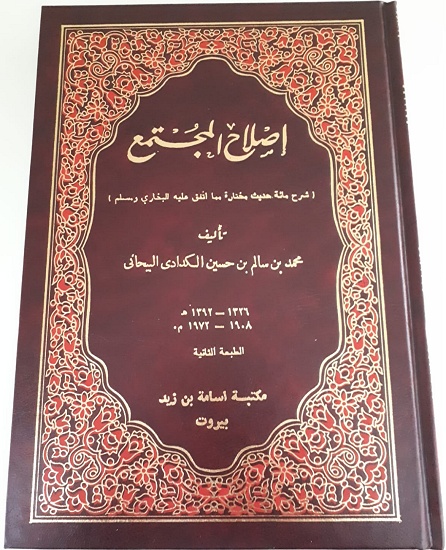 إصلاح المجتمع
( شرح مائة حديث مختارة مما اتفق عليه البخاري ومسلم )
تأليف
محمد بن سالم بن حسين الكدادي البيحاني
١٣٢٦ — ١٣٩٢ هـ
١٩٠٨ — ١٩٧٢ م.
الطبعة الثانية
مكتبة اسامة بن زيد
بيروت